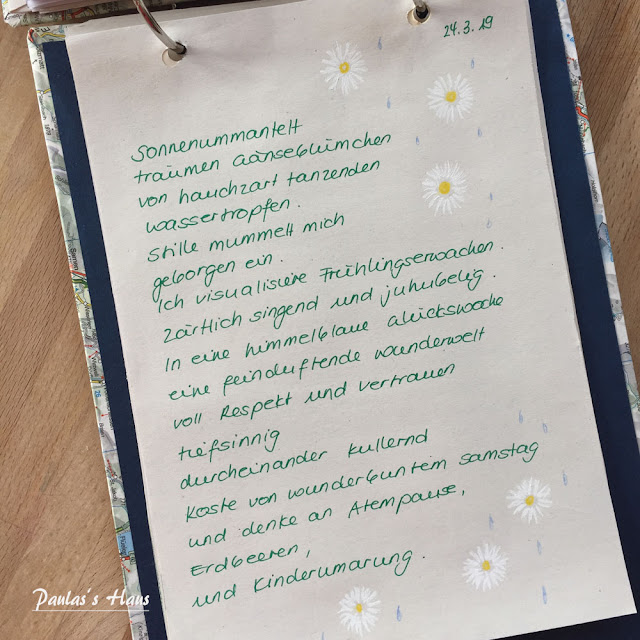 24.3.19
Sonnenummantelt
träumen Gänseblümchen
von hauchzart tanzenden
Wassertropfen.
Stille mummelt mich
geborgen ein.
Ich visualisiere Frühlingserwachen.
Zärtlich singend und juhubelig.
In eine himmelblaue Glückswoche
eine feinduftende Wunderwelt
voll Respekt und Vertrauen
tiefsinnig
durcheinander kullernd
Koste von wunderbuntem Samstag
und denke an Atempause,
Erdbeeren,
und Kinderumarung.
Paulas's Haus